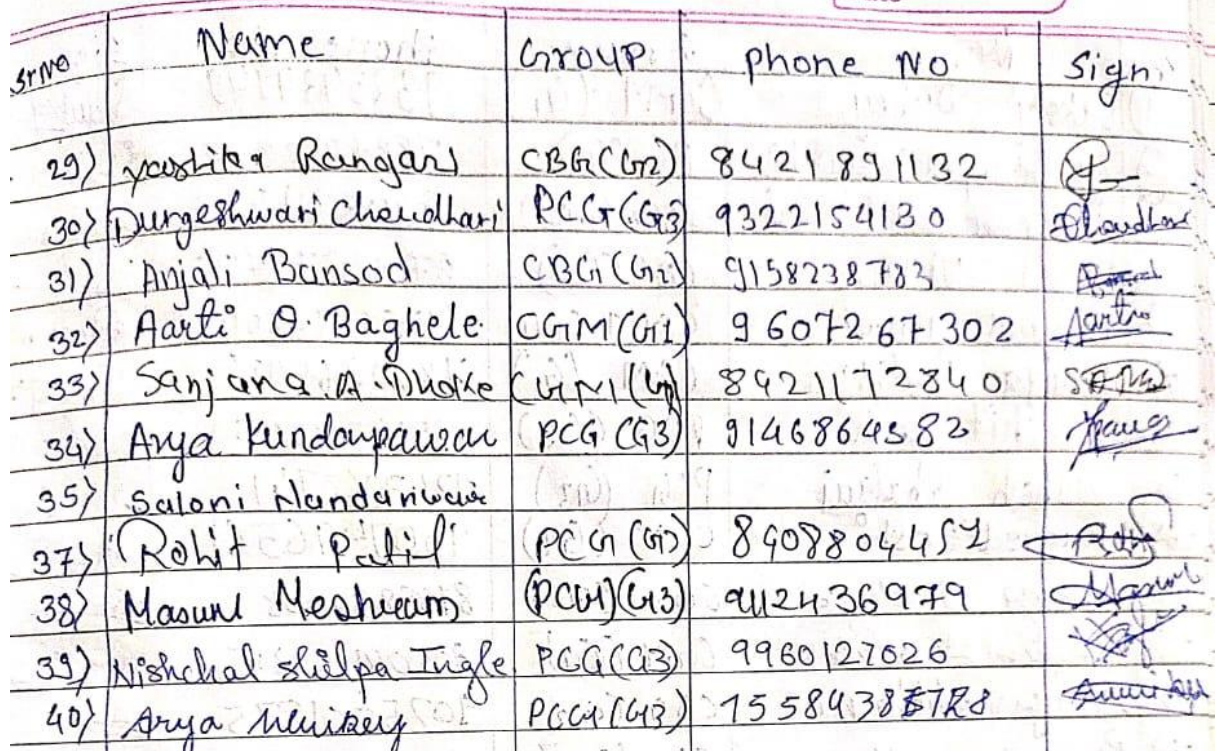 Sr No Name Group Phone No Sign
29) Yashika Rangari CBG(G2) 8421891132
30) Durgeshwari Choudhari PCG(G3) 9322154130 Choudhari
31) Anjali Bansod CBG(G2) 9158238783
32) Aarti O. Baghele CGM(G1) 9607267302 Aarti
33) Sanjana A. Dhoke CGM(G1) 8421172840
34) Arya Kundarpawar PCG(G3) 9146864582
35) Saloni Nandanwar
37) Rohit Patil PCG(G3) 8908804452
38) Masum Meshram (PCG)(G3) 9112436979 Masum
39) Nishchal Shilpa Ingle PCG(G3) 9960127026
40) Arya PCG(G3)